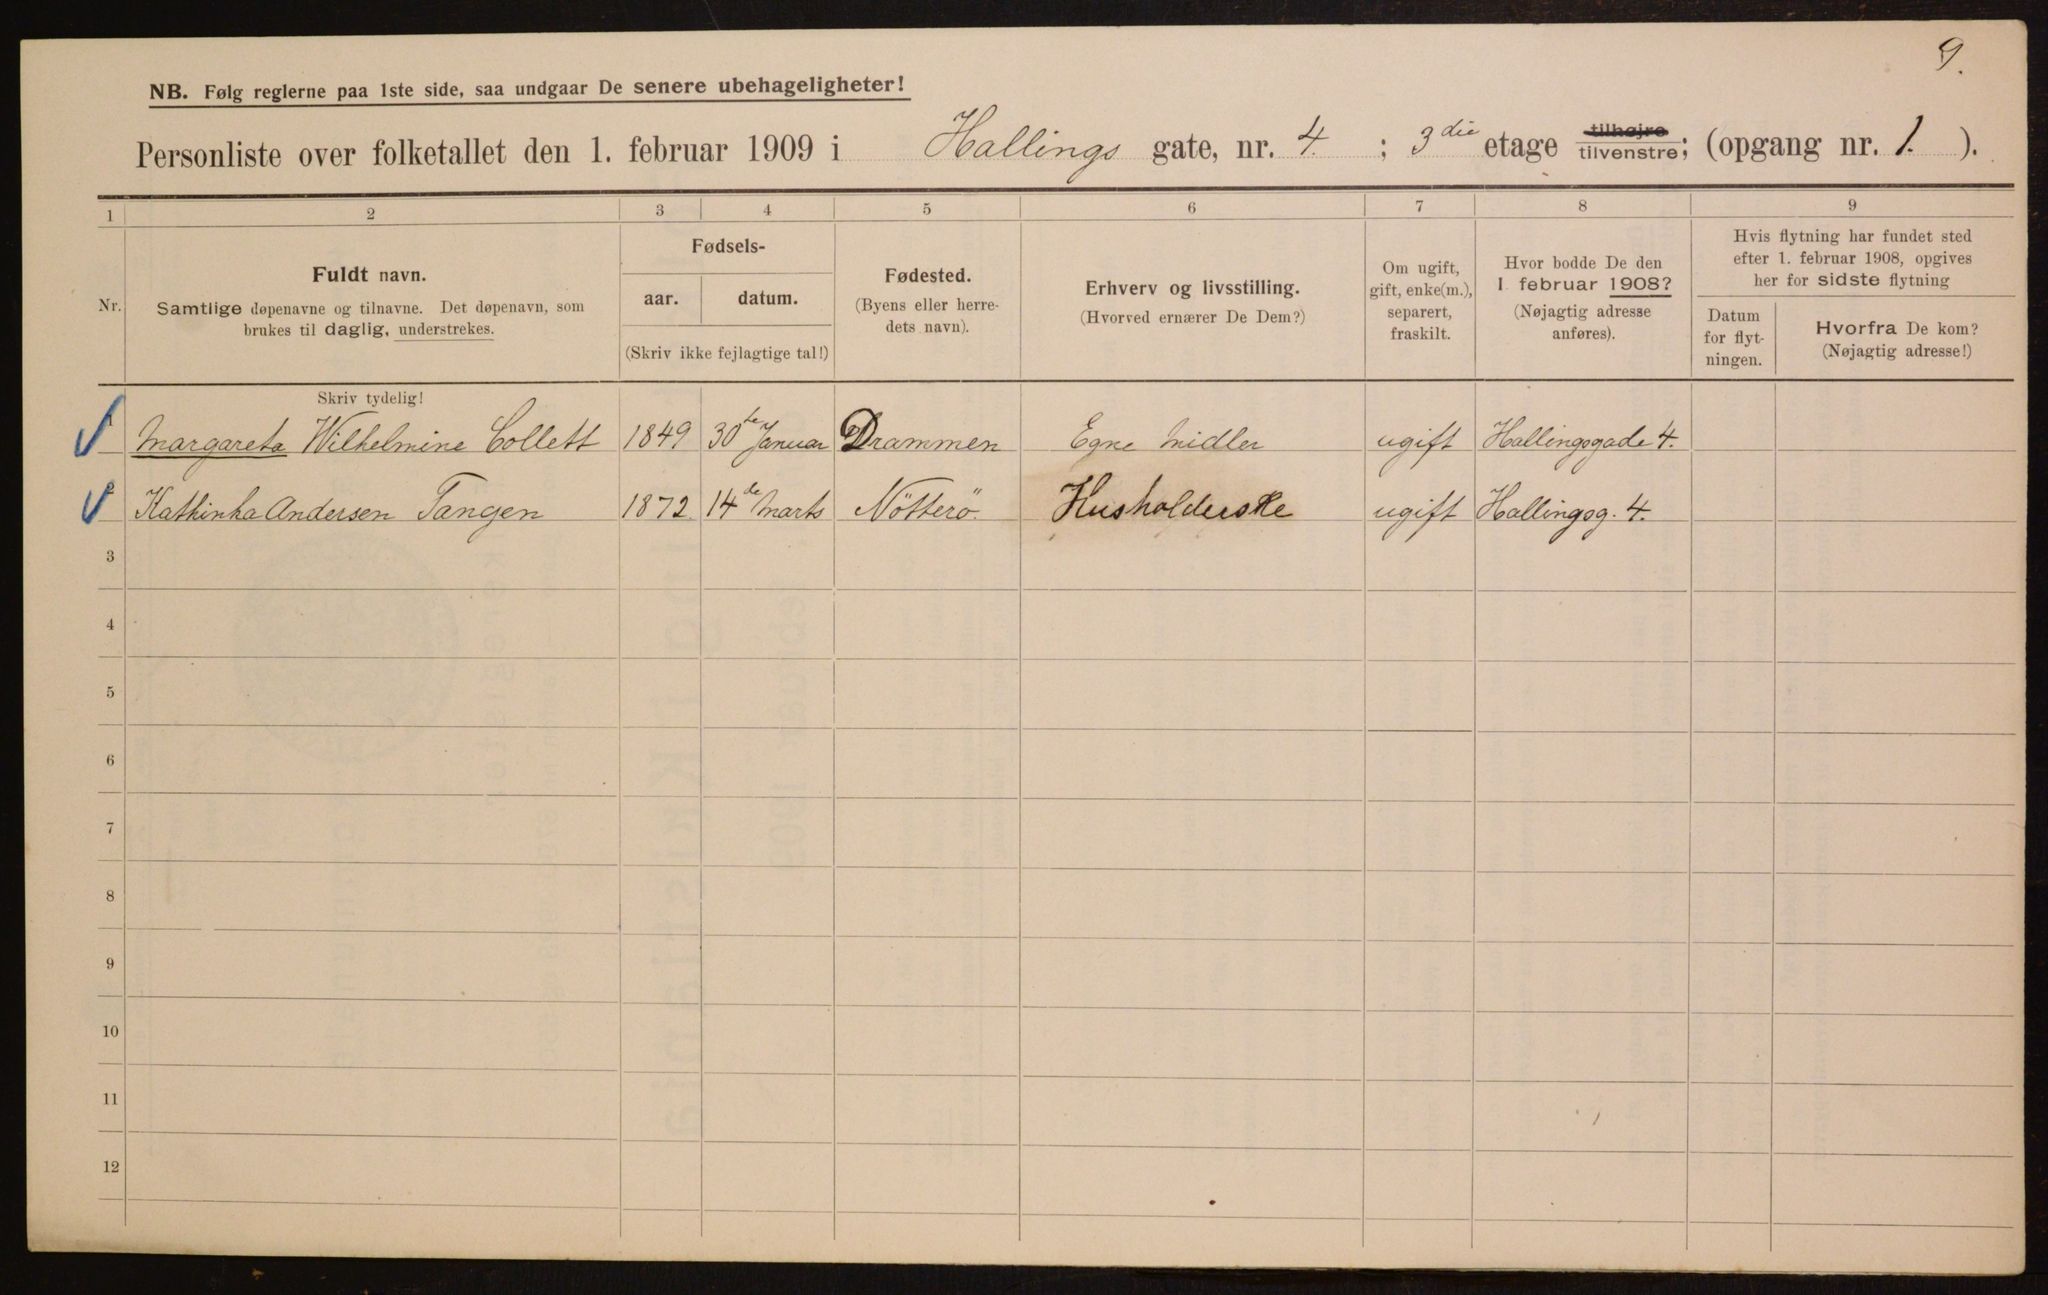 9.
NB. Følg reglerne paa 1ste side, saa undgaar De senere ubehageligheter!
Personliste over folketallet den 1. februar 1909 i Hallings gate, nr. 4. ; 3die etage tilhøjre tilvenstre; (opgang nr. 1. ).
1 2 3 4 5 6 7 8 9
Nr.
Fuldt navn.
Samtlige døpenavne og tilnavne. Det døpenavn, som
brukes til daglig, understrekes.
Fødsels-
aar. datum.
(Skriv ikke fejlagtige tal!)
Fødested.
(Byens eller herre-
dets navn).
Erhverv og livsstilling.
(Hvorved ernærer De Dem?)
Om ugift,
gift, enke(m.),
separert,
fraskilt.
Hvor bodde De den
1. februar 1908?
(Nøjagtig adresse
anføres).
Hvis flytning har fundet sted
efter 1. februar 1908, opgives
her for sidste flytning
Datum
for flyt-
ningen.
Hvorfra De kom?
(Nøjagtig adresse!)
Skriv tydelig!
1 Margareta Wilhelmine Collett 1849 30te Januar Drammen Egne Midler ugift Hallingsgade 4.
2 Kathinka Andersen Tangen 1872 14de Marts Nötterö. Husholderske ugift Hallingsg. 4.
3
4
5
6
7
8
9
10
11
12